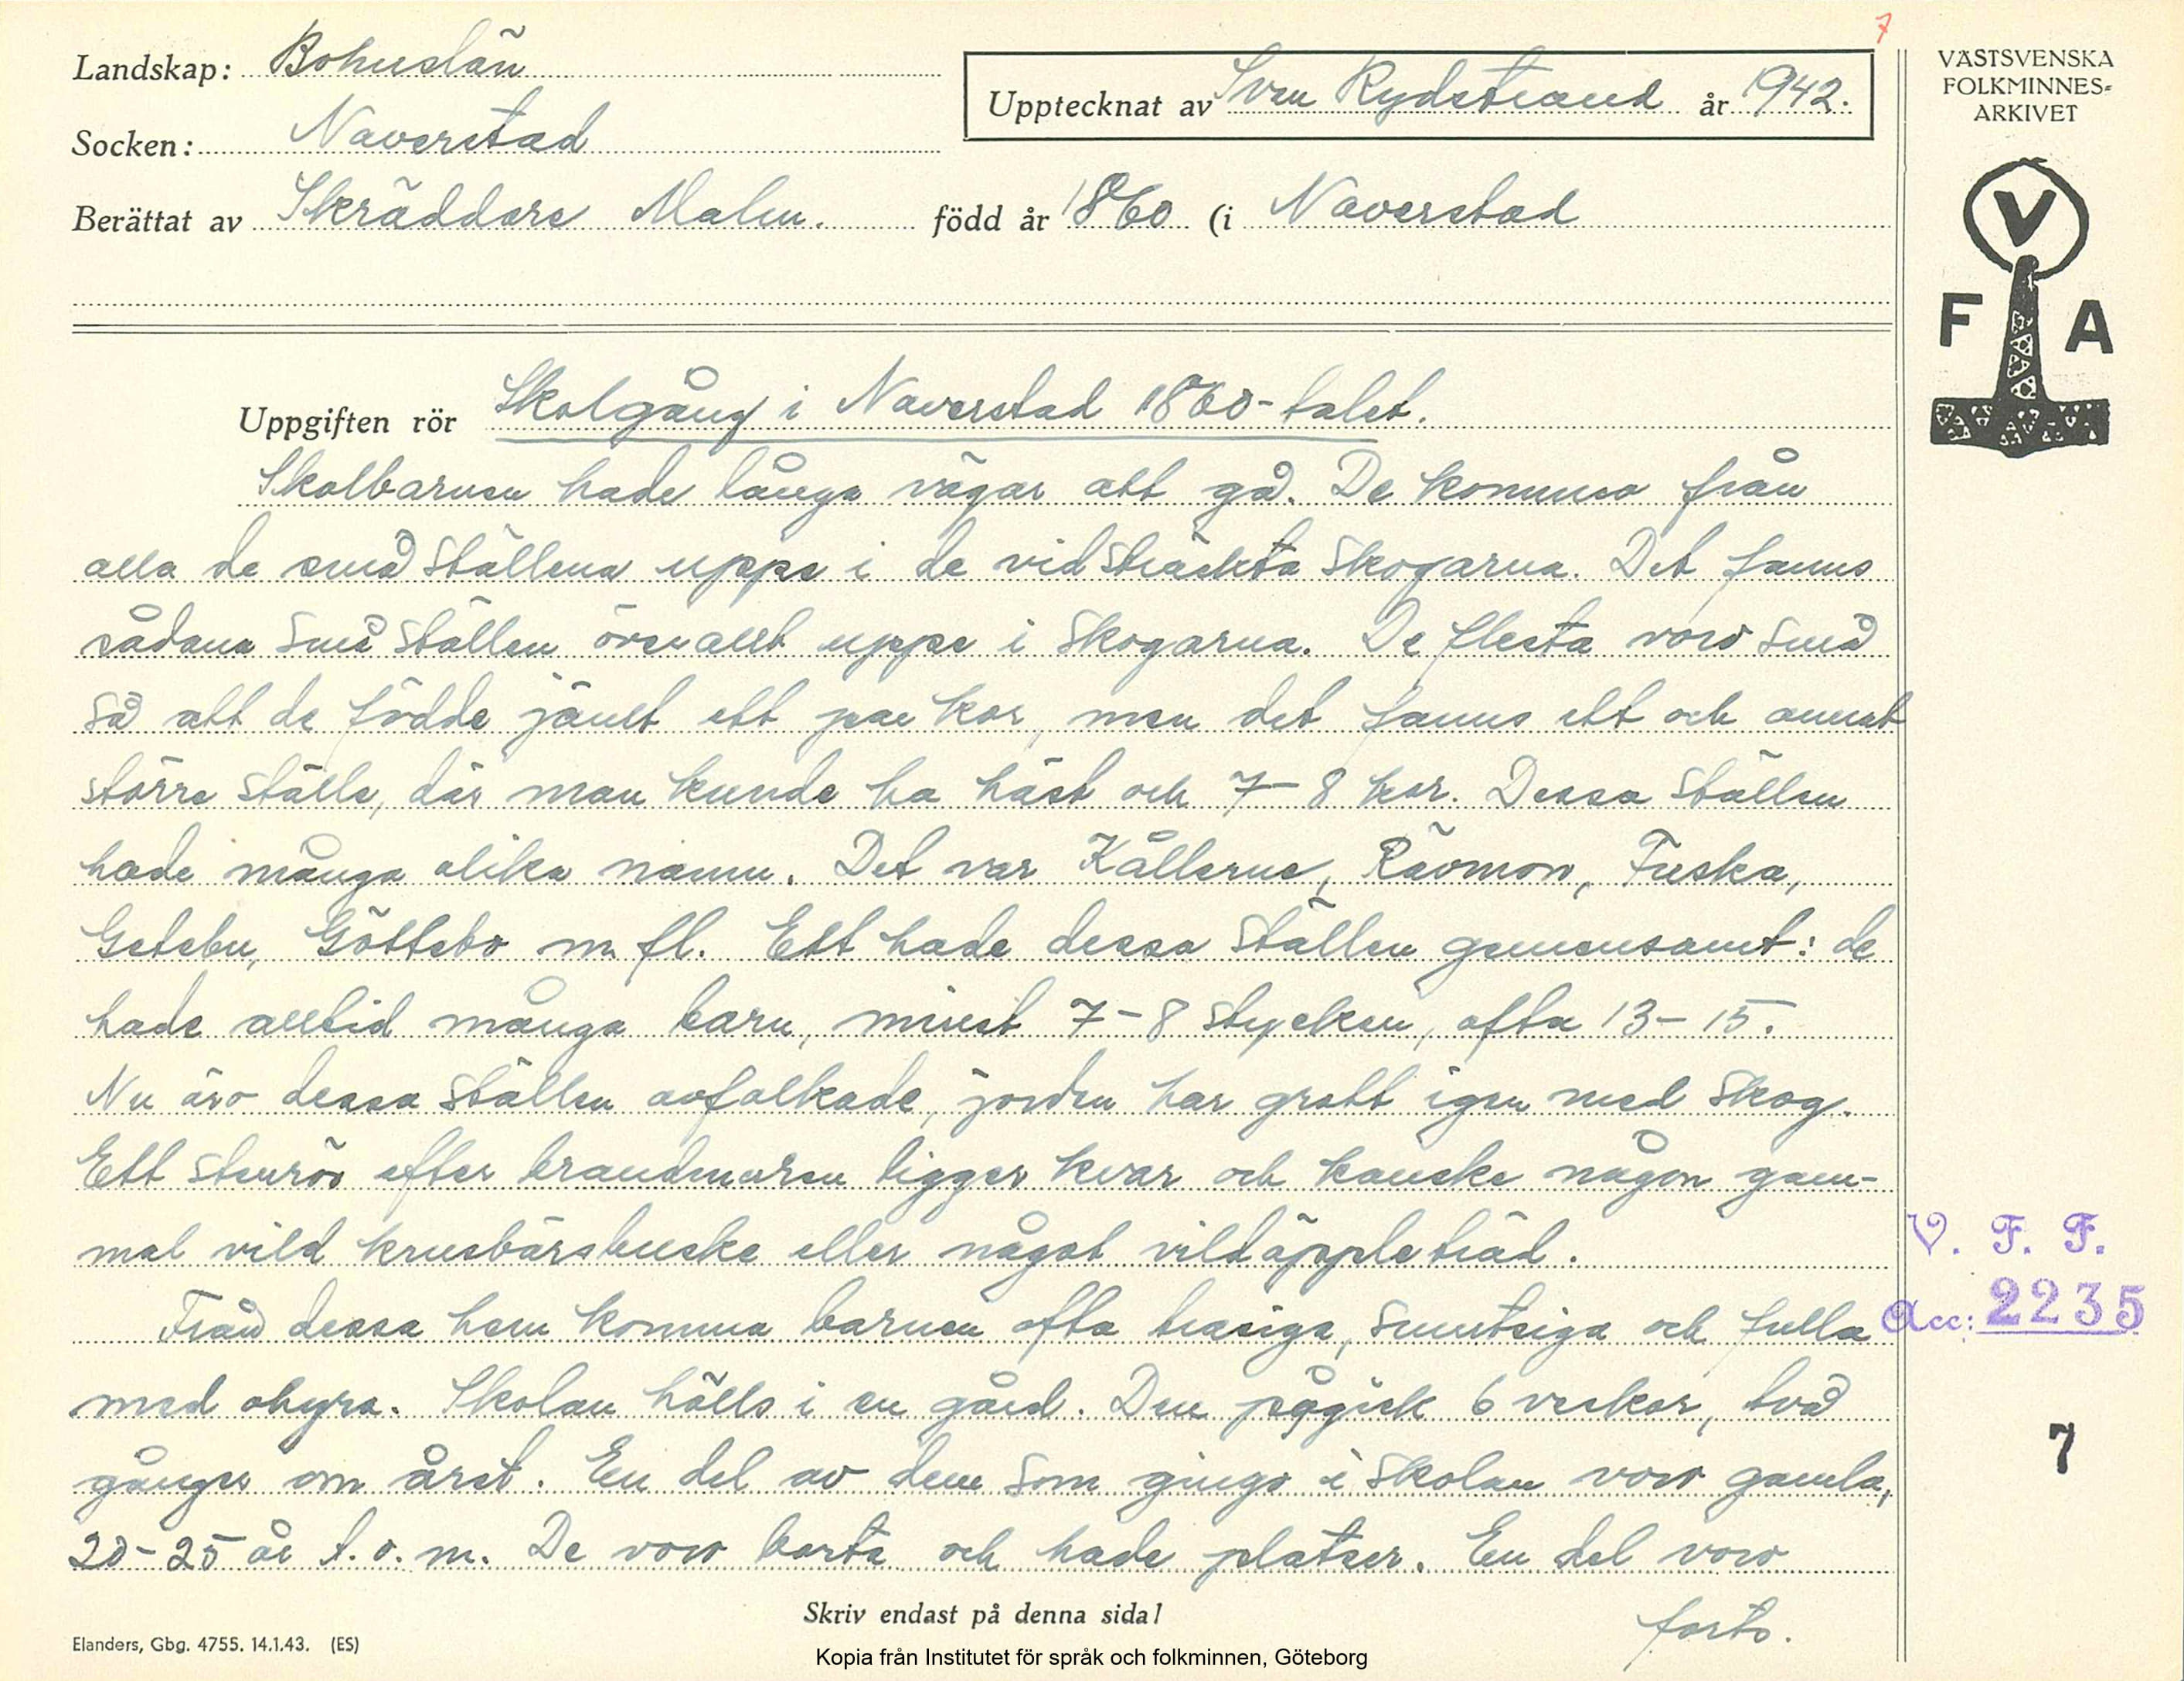 7
Landskap: Bohuslän
Upptecknat av Sven Rydstrand år 1942.
Socken: Naverstad
Berättat av Skräddare Malm. född år 1860 (i Naverstad
VÄSTSVENSKA
FOLKMINNES-
ARKIVET
V
F A
Uppgiften rör Skolgång i Naverstad 1860-talet.
Skolbarnen hade långa vägar att gå. De kommo från
alla de små ställena uppe i de vidsträckta skogarna. Det fanns
sådana små ställen överallt uppe i skogarna. De flesta voro små
så att de födde jämt ett par kor, men det fanns ett och annat
större ställe, där man kunde ha häst och 7-8 kor. Dessa ställen
hade många olika namn. Det var Kållerne, Rävmon, Fuska,
Getebu, Göttebo m. fl. Ett hade dessa ställen gemensamt: de
hade alltid många barn, minst 7-8 stycken, ofta 13-15.
Nu äro dessa ställen avfolkade, jorden har grott igen med skog.
Ett stenrös efter brandmuren ligger kvar och kanske någon gam-
mal vild krusbärsbuske eller något vildäppleträd.
Från dessa hem komma barnen ofta trasiga, smutsiga och fulla
med ohyra. Skolan hölls i en gård. Den pågick 6 veckor, två
gånger om året. En del av dem som gingo i skolan voro gamla,
20-25 år t. o. m. De voro borta och hade platser. En del voro
forts.
V. F. F.
Acc: 2235
7
Skriv endast på denna sida!
Elanders, Gbg. 4755. 14.1.43. (ES)
Kopia från Institutet för språk och folkminnen, Göteborg